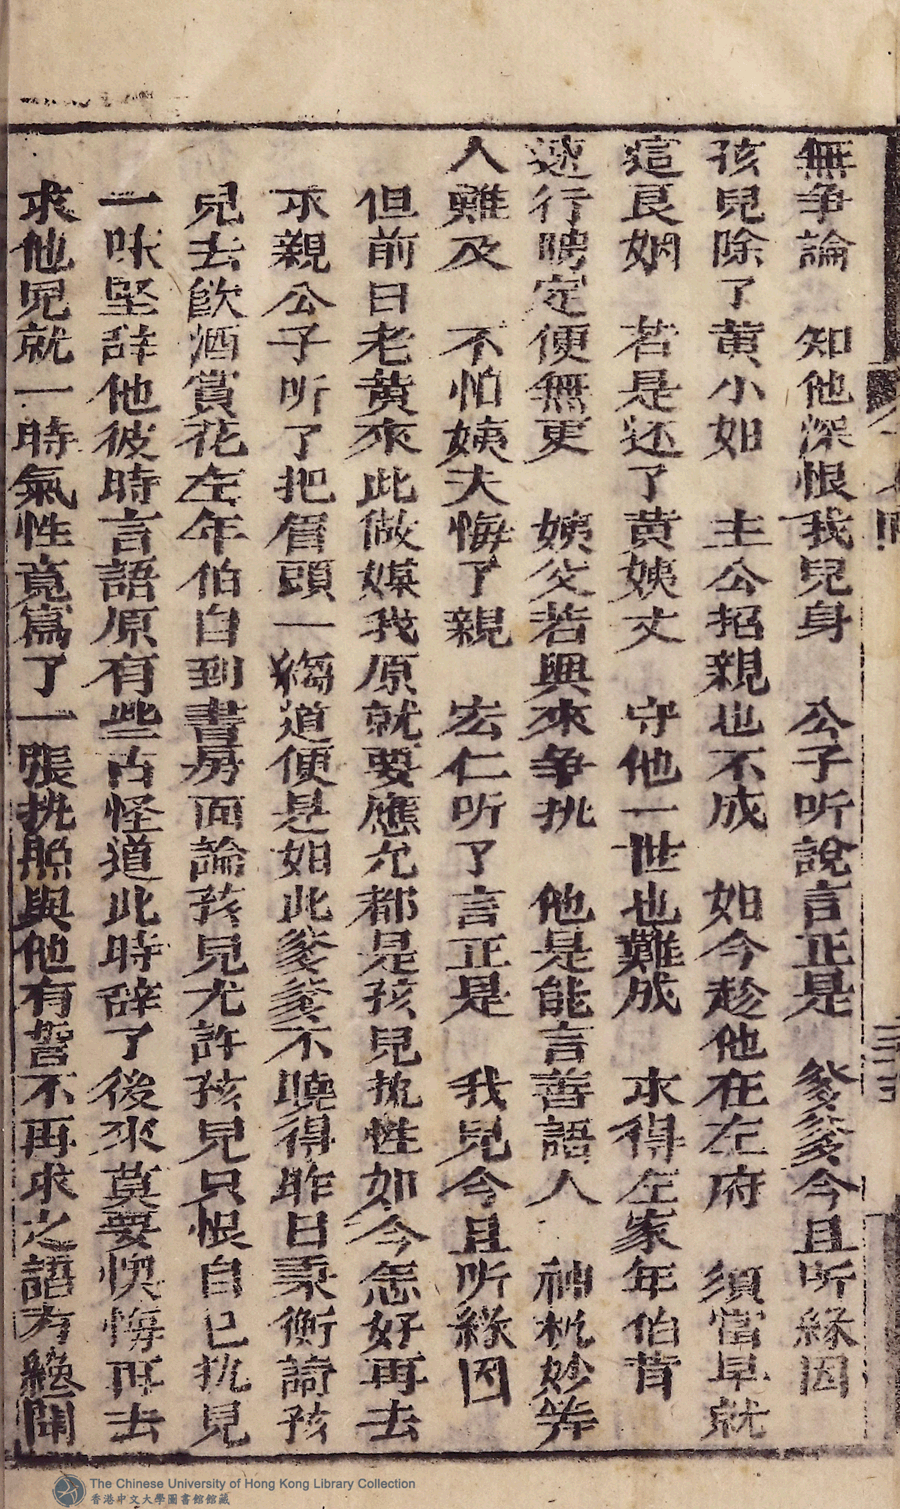 無争論　知他深恨我兒身　公子听說言正是　爹爹今且听緣因
孩兒除了黄小如　主公招親也不成　如今趁他在左府　須當早就
這良姻　若是还了黄姨丈　守他一世也難成　求得左家年伯肯
速行聘定便無更　姨父若興來争挑　他是能言善語人　神机妙筭
人難及　不怕姨夫悔了親　宏仁听了言正是　我兒今且听緣因
但前日老黄來此做媒我原就要應允都是孩兒执性如今怎好再去
求親公子听了把眉頭一縐道便是如此爹爹不曉得昨日秉衡請孩
兒去飲酒賞花左年伯自到書房面論孩兒尤許孩兒只恨自已执見
一味堅辞他彼時言語原有些古怪道此時辞了後來莫要懊悔再去
求他兒就一時氣性竟寫了一張执照與他有誓不再求之語方纔開
The Chinese University of Hong Kong Library Collection
香港中文大學圖書館館藏